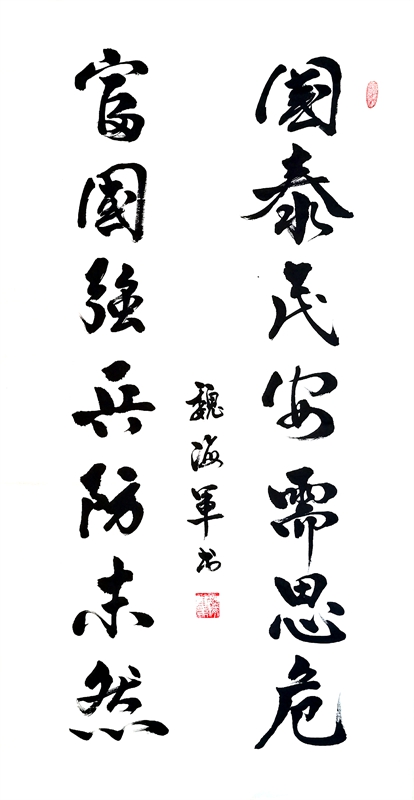 國泰民安需思危
富國強兵防未然
魏海軍书